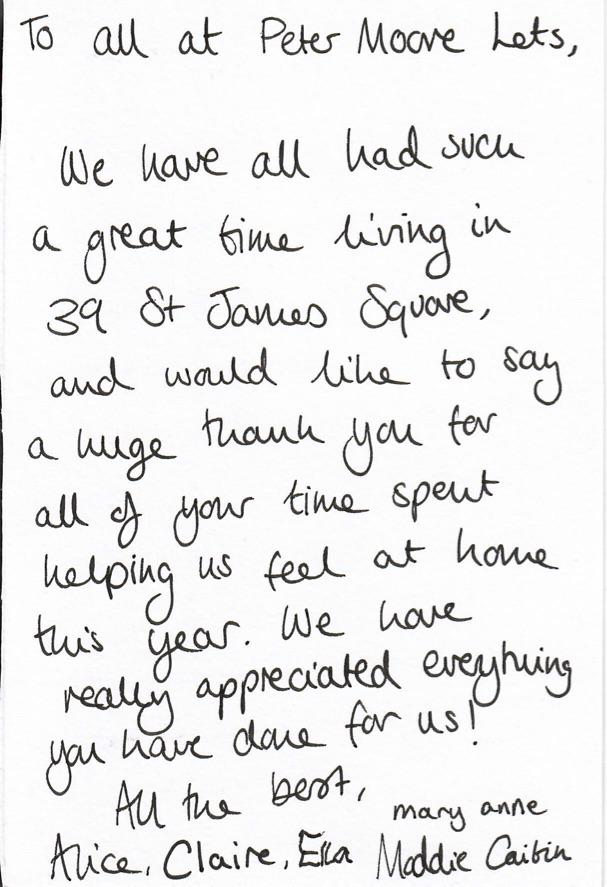 To all at Peter Moore Lets,
We have all had such
a great time living in
39 St James Square,
and would like to say
a huge thank you for
all of your time spent
helping us feel at home
this year. We have
really appreciated eveything
you have done for us!
All the best,
mary anne
Alice, Claire, Ella Maddie Caitin